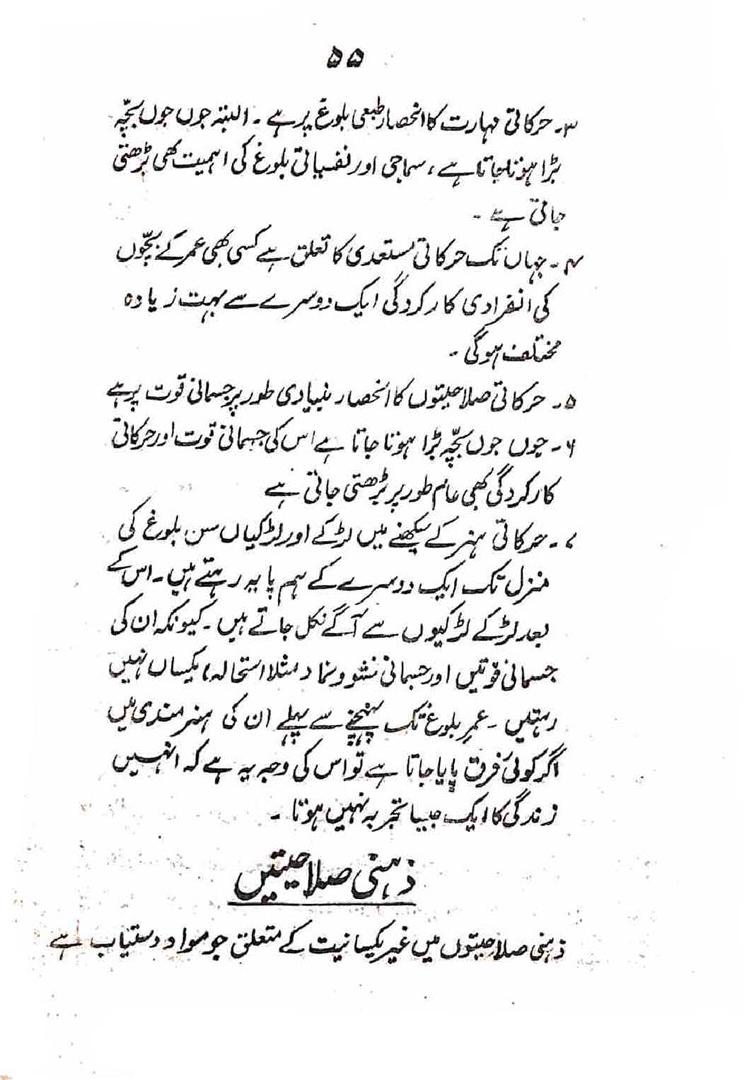 ۵۵
۳۔ حرکاتی مہارت کا انحصار طبعی بلوغ پر ہے ۔ البتہ جوں جوں بچّہ
بڑا ہوتا جاتا ہے ، سماجی اور نفسیاتی بلوغ کی اہمیت بھی بڑھتی
جاتی ہے ۔
۴۔ جہاں تک حرکاتی مستعدی کا تعلق ہے کسی بھی عمر کے بچّوں
کی انفرادی کارکردگی ایک دوسرے سے بہت زیادہ
مختلف ہوگی ۔
۵۔ حرکاتی صلاحیتوں کا انحصار بنیادی طور پر جسمانی قوت پر ہے
۶۔ جوں جوں بچّہ بڑا ہوتا جاتا ہے اس کی جسمانی قوت اور حرکاتی
کارکردگی بھی عام طور پر بڑھتی جاتی ہے
۷۔ حرکاتی ہنر کے سیکھنے میں لڑکے اور لڑکیاں سن بلوغ کی
منزل تک ایک دوسرے کے ہم پایہ رہتے ہیں ۔ اس کے
بعد لڑکے لڑکیوں سے آگے نکل جاتے ہیں ۔ کیونکہ ان کی
جسمانی قوتیں اور جسمانی نشوونما (مثلا استحالہ) یکساں نہیں
رہتیں ۔ عمر بلوغ تک پہنچنے سے پہلے ان کی ہنرمندی میں
اگر کوئی فرق پایا جاتا ہے تو اس کی وجہ یہ ہے کہ انہیں
زندگی کا ایک جیسا تجربہ نہیں ہوتا ۔
ذہنی صلاحیتیں
ذہنی صلاحیتوں میں غیر یکسانیت کے متعلق جو مواد دستیاب ہے